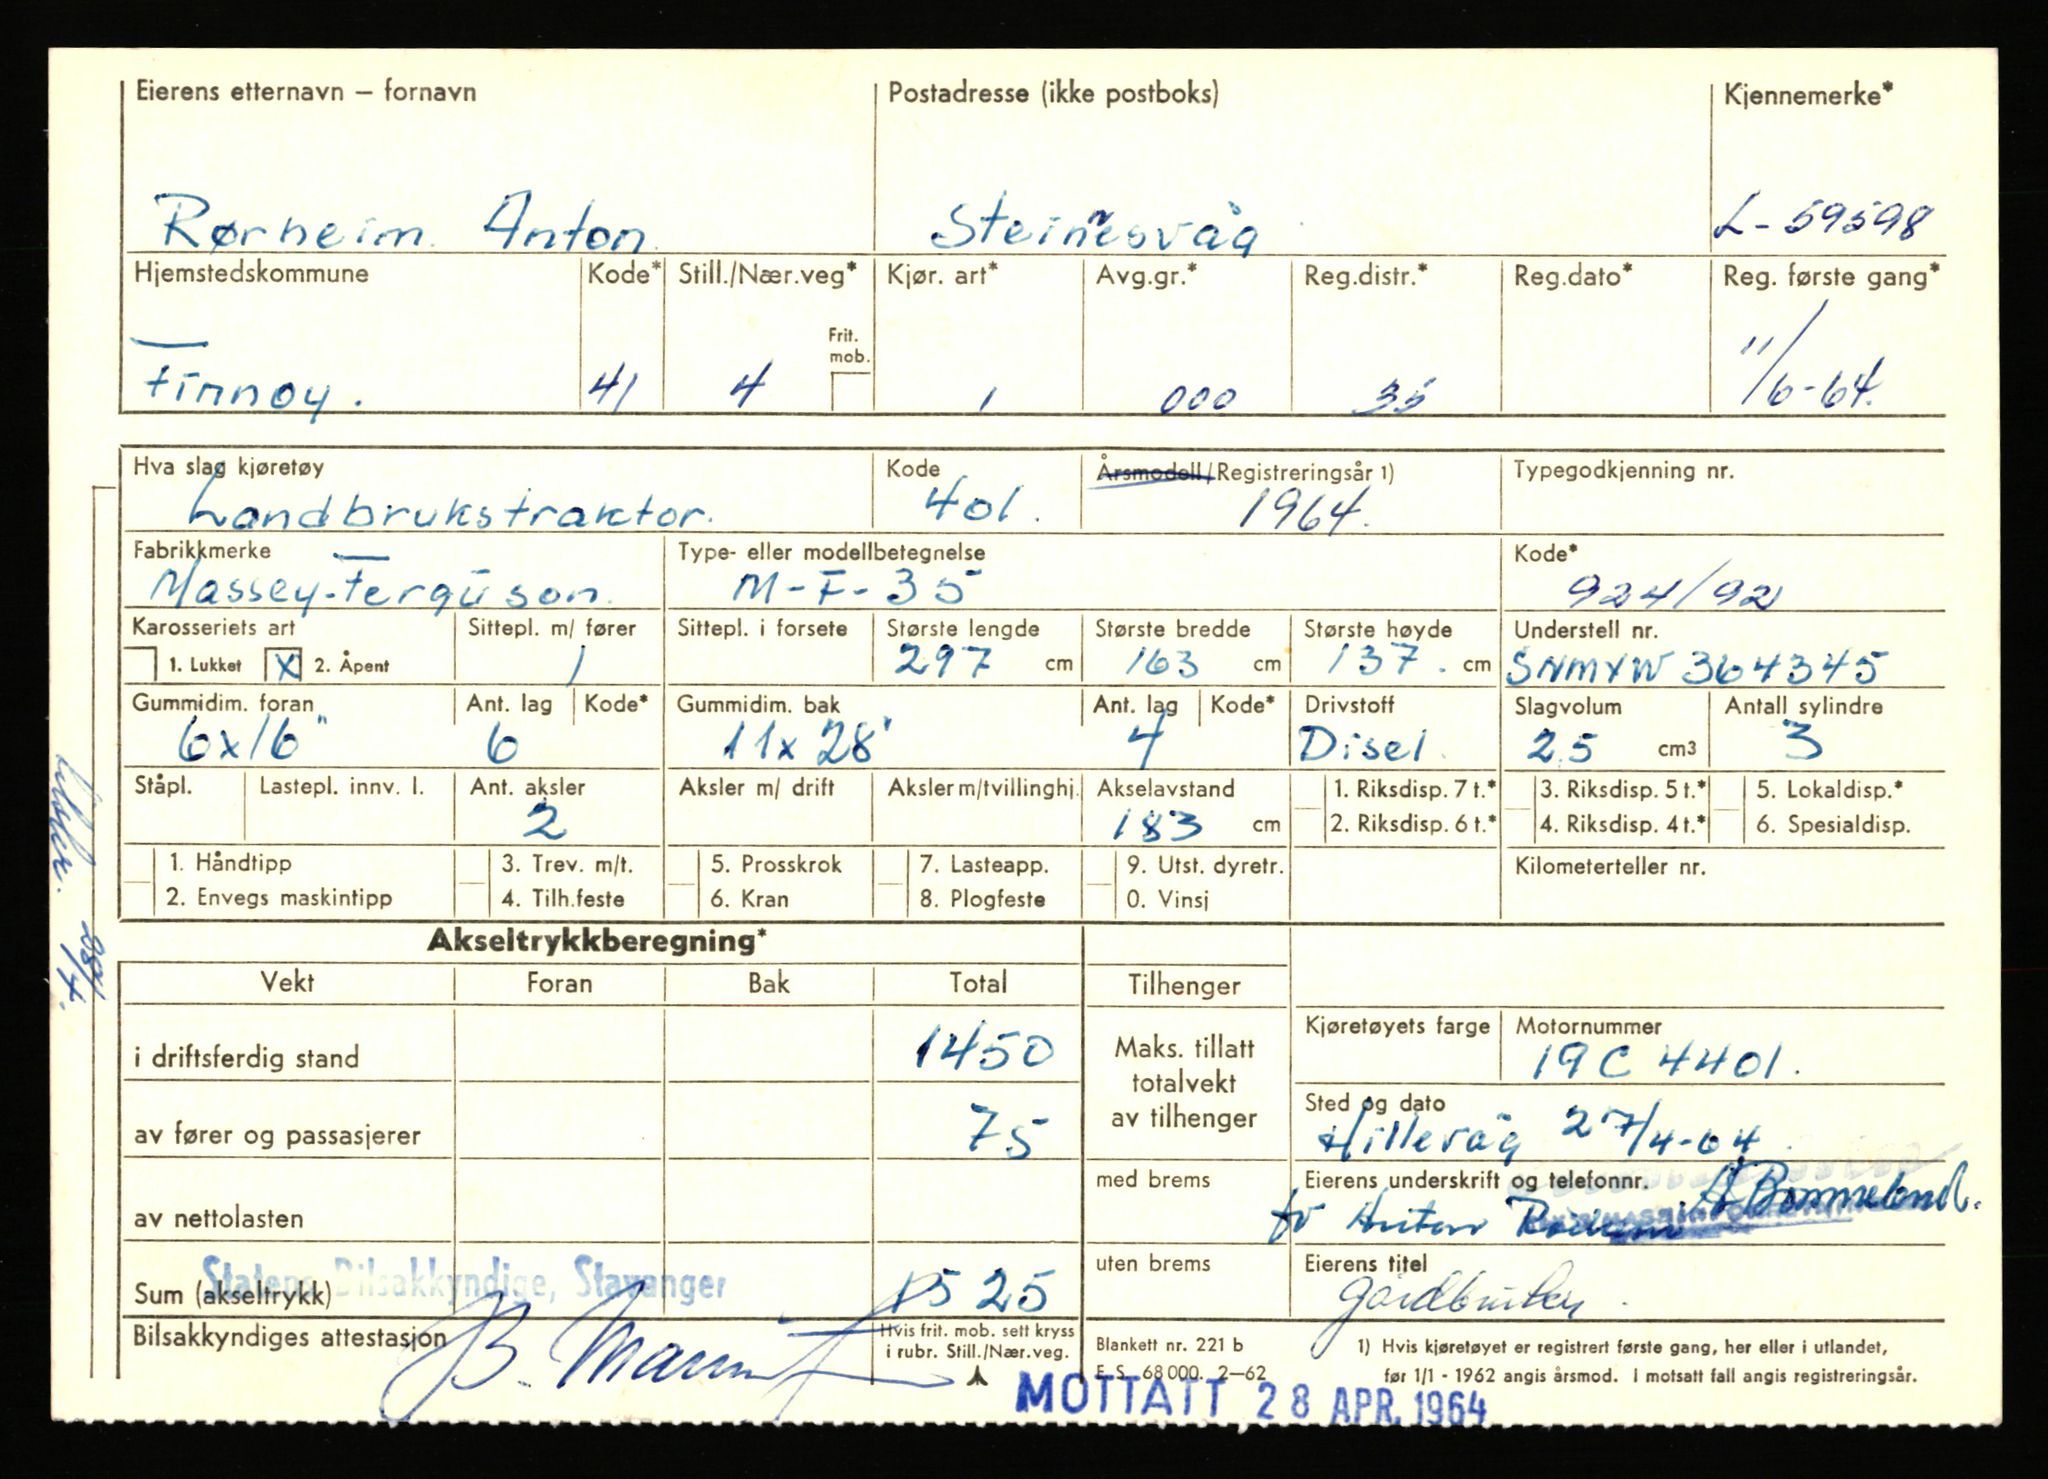 Eierens etternavn – fornavn Postadresse (ikke postboks) Kjennemerke*
Rørheim Anton Steinnesvåg L-59598
Hjemstedskommune Kode* Still./Nær.veg* Kjør. art* Avg.gr.* Reg.distr.* Reg.dato* Reg. første gang*
Frit. mob.
Finnøy. 41 4 1 000 35 11/6-64.
Hva slag kjøretøy Kode Årsmodell/Registreringsår 1) Typegodkjenning nr.
Landbrukstraktor. 401. 1964.
Fabrikkmerke Type- eller modellbetegnelse Kode*
Massey-Ferguson. M-F-35 924/92
Karosseriets art Sittepl. m/ fører Sittepl. i forsete Største lengde Største bredde Største høyde Understell nr.
1. Lukket X 2. Åpent 1 297 cm 163 cm 137. cm SNMYW 364345
Gummidim. foran Ant. lag Kode* Gummidim. bak Ant. lag Kode* Drivstoff Slagvolum Antall sylindre
6x16" 6 11x28' 4 Disel. 2.5 cm3 3
Ståpl. Lastepl. innv. l. Ant. aksler Aksler m/ drift Aksler m/tvillinghj. Akselavstand 1. Riksdisp. 7 t.* 3. Riksdisp. 5 t.* 5. Lokaldisp.*
2 183 cm 2. Riksdisp. 6 t.* 4. Riksdisp. 4 t.* 6. Spesialdisp.
1. Håndtipp 3. Trev. m/t. 5. Prosskrok 7. Lasteapp. 9. Utst. dyretr. Kilometerteller nr.
2. Envegs maskintipp 4. Tilh.feste 6. Kran 8. Plogfeste 0. Vinsj
Akseltrykkberegning*
Vekt Foran Bak Total Tilhenger
Kjøretøyets farge Motornummer
i driftsferdig stand 1450 Maks. tillatt totalvekt av tilhenger 19C 4401.
Sted og dato
av fører og passasjerer 75 Hillevåg 27/4-64.
med brems Eierens underskrift og telefonnr.
av nettolasten for Anton
uten brems Eierens titel
Statens Bilsakkyndige, Stavanger
Sum (akseltrykk) 1525 Gårdbruker.
Bilsakkyndiges attestasjon Hvis frit. mob. sett kryss i rubr. Still./Nær.veg. Blankett nr. 221 b 1) Hvis kjøretøyet er registrert første gang, her eller i utlandet,
E. S. 68 000. 2–62 før 1/1 - 1962 angis årsmod. I motsatt fall angis registreringsår.
MOTTATT 28 APR. 1964